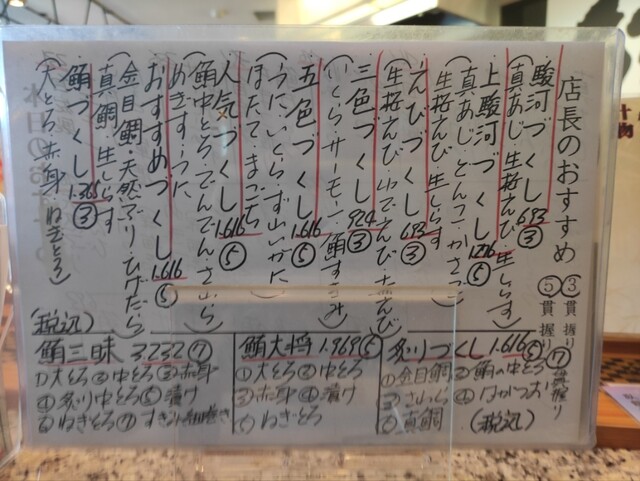 店長のおすすめ
③貫握り
⑤貫握り
⑦貫握り
駿河づくし 693 ③
(真あじ・生桜えび・生しらす)
上駿河づくし ⑤
真あじ・
生桜えび・生しらす
えびづくし 693 ③
(生桜えび・
三色づくし 924 ③
(いくら・サーモン・鮪すきみ)
五色づくし 1.616 ⑤
(うに・いくら・ずわいがに
ほたて・まぐろ)
人気づくし 1.616 ⑤
(鮪中とろ・
おすすめづくし 1.616 ⑤
(金目鯛・天然ブリ・ひげたら
真鯛・生しらす)
鮪づくし ③
(大とろ・赤身・ねぎとろ)
(税込)
炙りづくし 1.616 ⑤
①金目鯛 ②鮪の中とろ
⑤真鯛
(税込)
鮪大将 1.969 ⑤
①大とろ ②中とろ
③赤身 ④漬け
⑤ねぎとろ
鮪三昧 3.232 ⑦
①大とろ ②中とろ ③赤身
④炙り中とろ ⑤漬け
⑥ねぎとろ ⑦すきみ